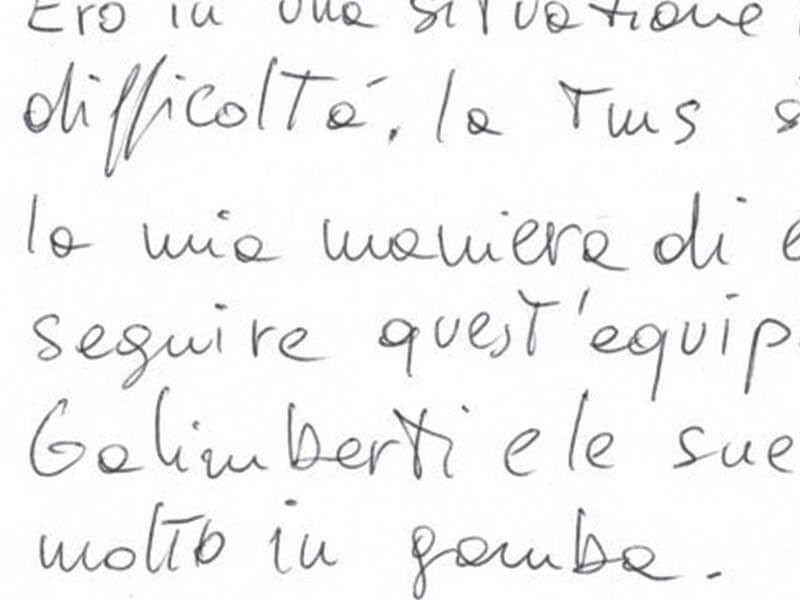 Ero in una situazione
difficoltá, la Tms s
la mia maniera di e
seguire quest'equip
Galimberti e le sue
molto in gamba.